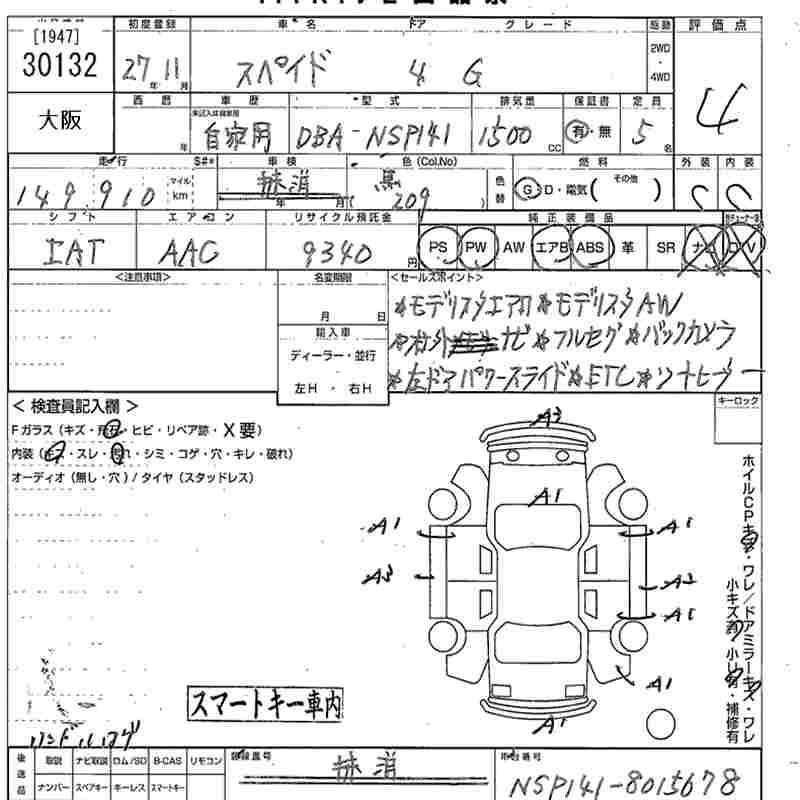 [1947]
30132
大阪
初度登録 車名 ドア グレード 駆動 評価点
27年 11月 スペイド 4 G 2WD・4WD 4
西暦 車歴 型式 排気量 保証書 定員
年 自家用 DBA-NSP141 1500 CC 有・無 5名
走行 S#* 車検 色(Col.No) 燃料 外装 内装
149,910 マイル km 抹消 年 月 黒 (209) 色替 G・D・電気( その他 ) C C
シフト エアコン リサイクル預託金 純正装備品
IAT AAC 9340円 PS PW AW エアB ABS 革 SR ナビ TV
<注意事項> 名変期限 <セールスポイント>
月 日
輸入車
ディーラー・並行
左H ・ 右H
*モデリスタエアロ*モデリスタAW
*社外ナビ*フルセグ*バックカメラ
*左ドアパワースライド*ETC*シートヒーター
< 検査員記入欄 >
キーロック
Fガラス (キズ・飛石・ヒビ・リペア跡・X要)
内装 (キズ・スレ・汚れ・シミ・コゲ・穴・キレ・破れ)
オーディオ (無し・穴) / タイヤ (スタッドレス)
A3
A1
A1 A1
A3 A2
A1
A1
A1
ホイルCPキズ・ワレ/ドアミラーキズ・ワレ
小キズ有・小凹有・補修有
スマートキー車内
ハンドルコゲ
後送品 取説 ナビ取説 ロム/SD B-CAS リモコン 登録番号 車台番号
ナンバー スペアキー キーレス スマートキー 抹消 NSP141-8015678